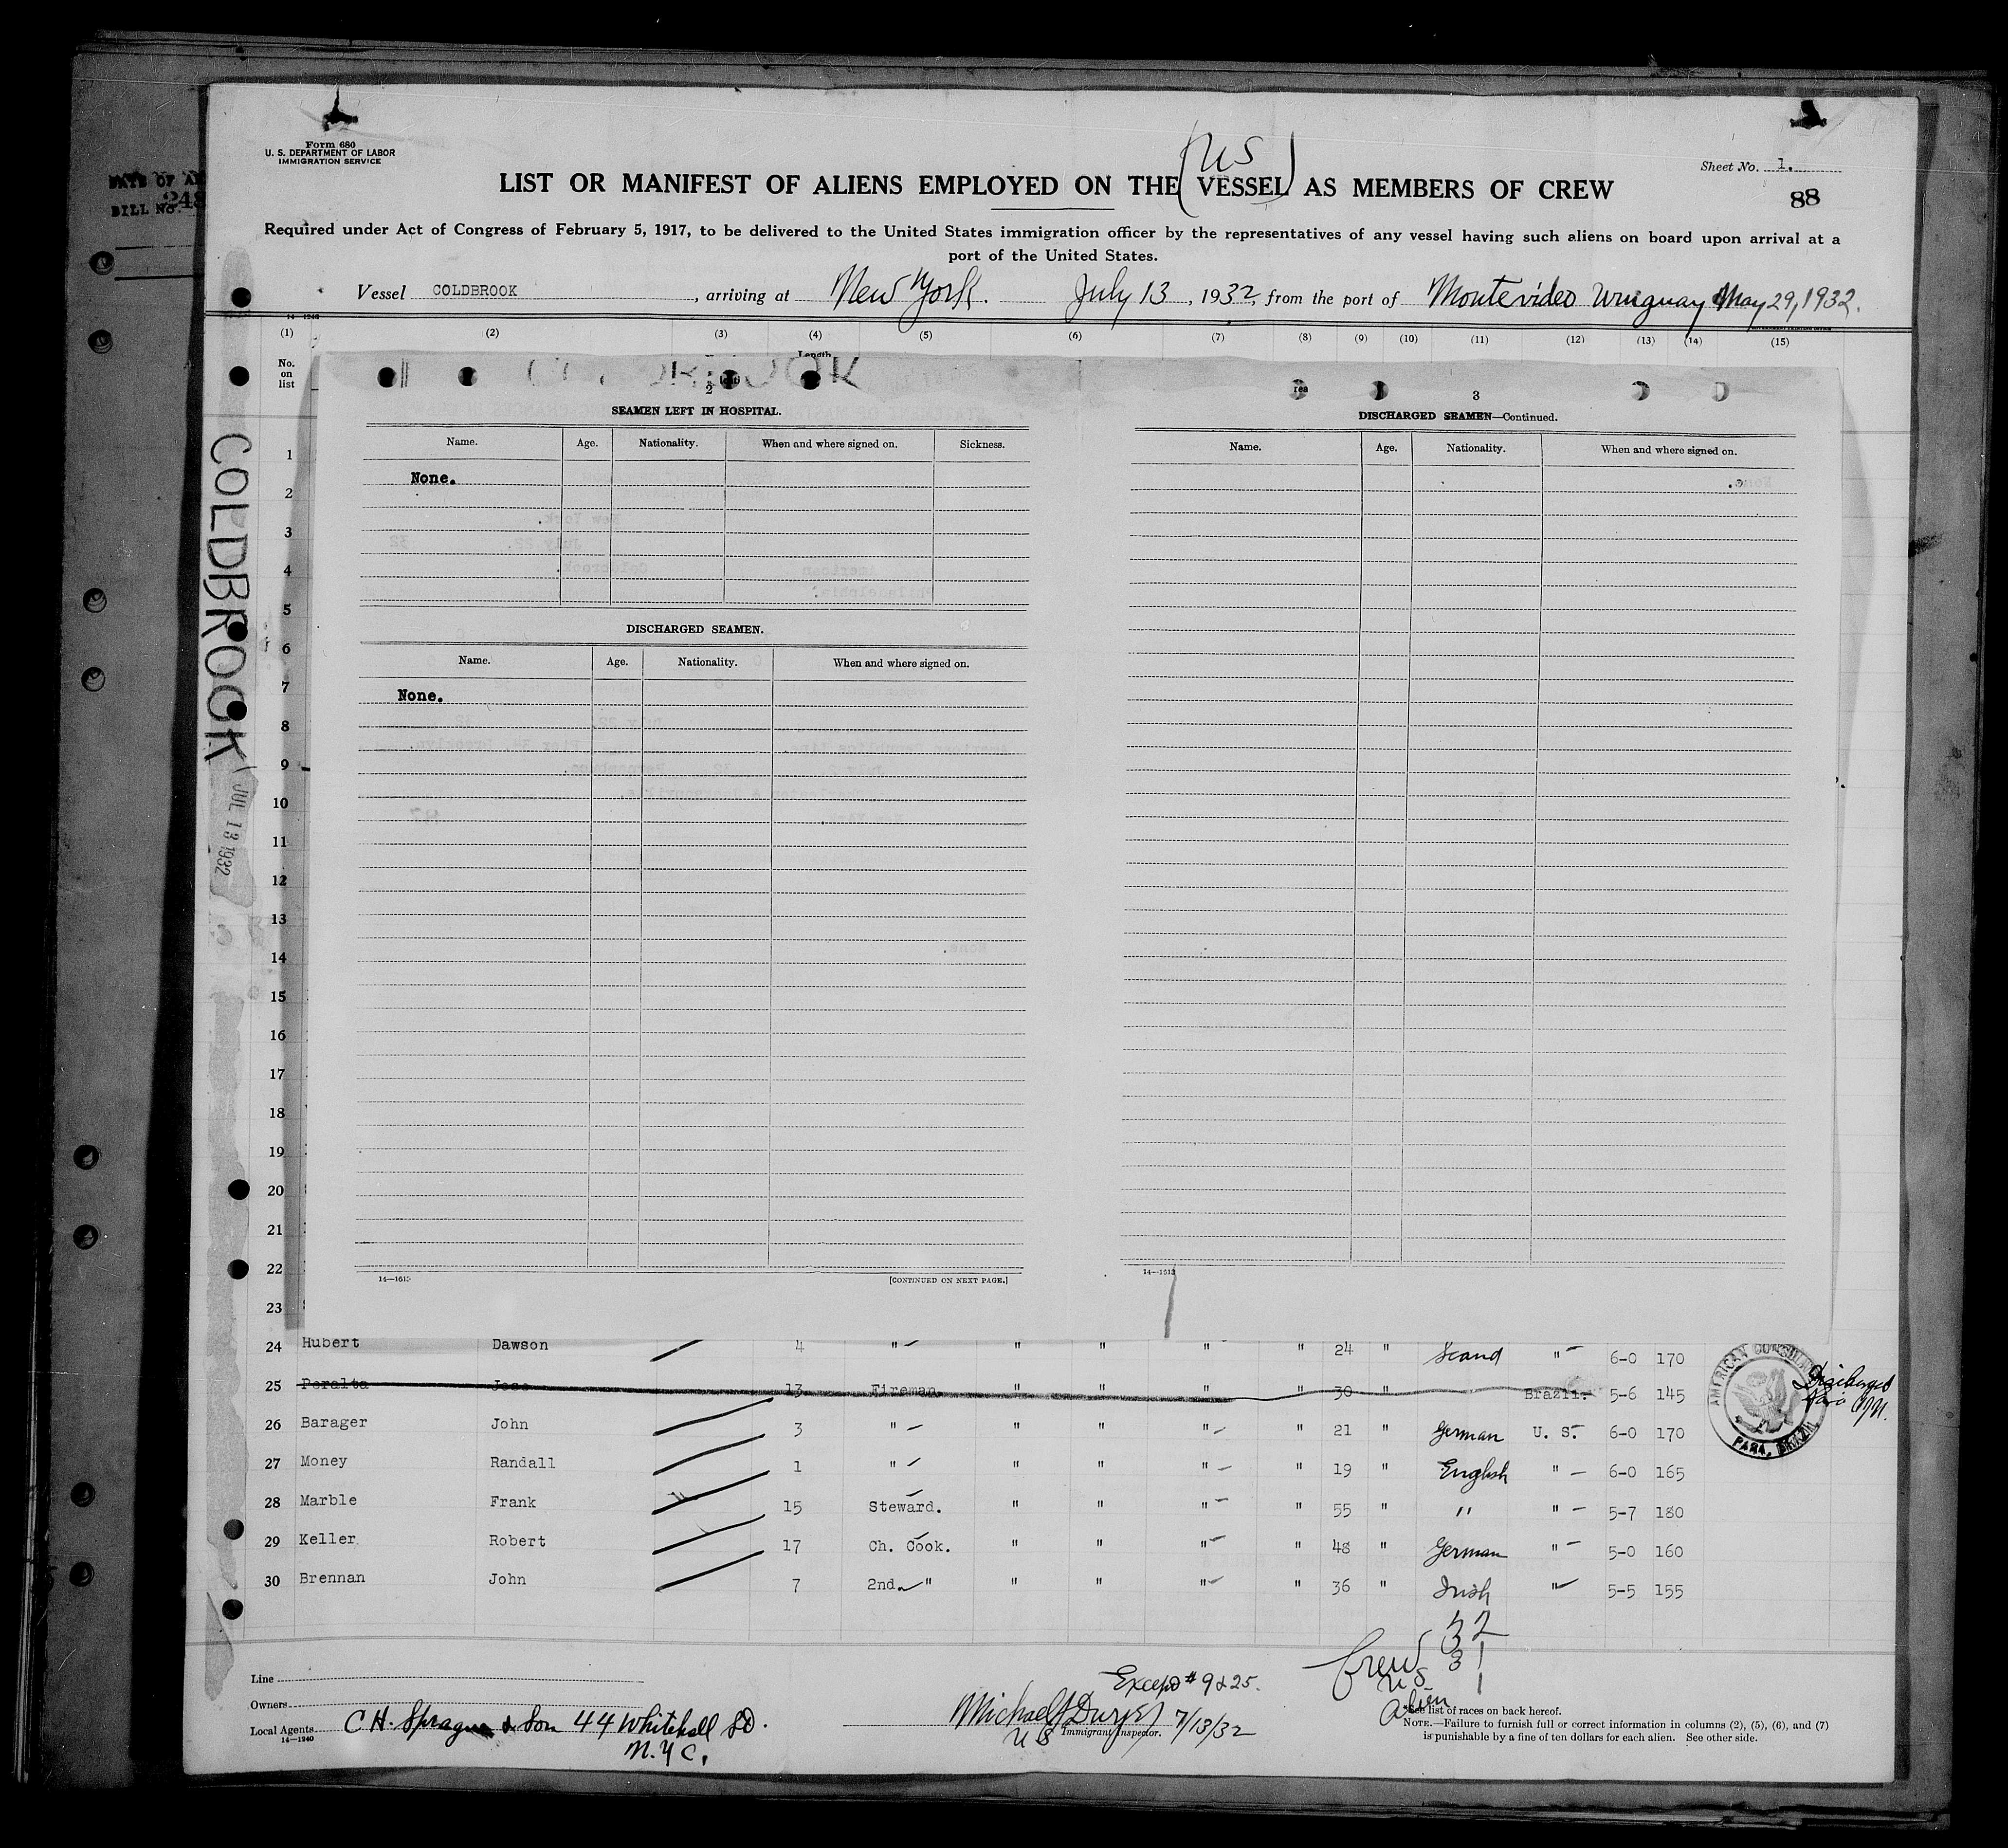 DATE OF
BILL No. 248
Form 680
U. S. DEPARTMENT OF LABOR
IMMIGRATION SERVICE
(US)
Sheet No. 1.
LIST OR MANIFEST OF ALIENS EMPLOYED ON THE VESSEL AS MEMBERS OF CREW
88
Required under Act of Congress of February 5, 1917, to be delivered to the United States immigration officer by the representatives of any vessel having such aliens on board upon arrival at a
port of the United States.
Vessel COLDBROOK, arriving at New York. July 13, 1932, from the port of Montevideo Uruguay May 29, 1932.
(1) (2) (3) (4) (5) (6) (7) (8) (9) (10) (11) (12) (13) (14) (15)
No.
on
list
Length
COLDBROOK
JUL 13 1932
2
SEAMEN LEFT IN HOSPITAL.
Name. Age. Nationality. When and where signed on. Sickness.
None.
DISCHARGED SEAMEN.
Name. Age. Nationality. When and where signed on.
None.
14—1613 [CONTINUED ON NEXT PAGE.]
3
DISCHARGED SEAMEN—Continued.
Name. Age. Nationality. When and where signed on.
14—1613
1
2
3
4
5
6
7
8
9
10
11
12
13
14
15
16
17
18
19
20
21
22
23
24 Hubert Dawson 4 " " " " " 24 " Scand " 6-0 170
25 Peralta Jose 13 Fireman " " " " 30 " Brazil. 5-6 145 Discharged
26 Barager John 3 " " " " " 21 " German U. S. 6-0 170
27 Money Randall 1 " " " " " 19 " English " 6-0 165
28 Marble Frank 15 Steward. " " " " 55 " " " 5-7 180
29 Keller Robert 17 Ch. Cook. " " " " 48 " German " 5-0 160
30 Brennan John 7 2nd. " " " " " 36 " Irish " 5-5 155
AMERICAN CONSULATE
PARA, BRAZIL
Line
Owners
Local Agents C H. Sprague & Son 44 Whitehall St.
14—1240
N.Y C.
Except # 9 & 25.
Michael J Dwyer 7/13/32
U S Immigrant Inspector.
Crew 32
US 31
Alien 1
*See list of races on back hereof.
NOTE.—Failure to furnish full or correct information in columns (2), (5), (6), and (7)
is punishable by a fine of ten dollars for each alien. See other side.